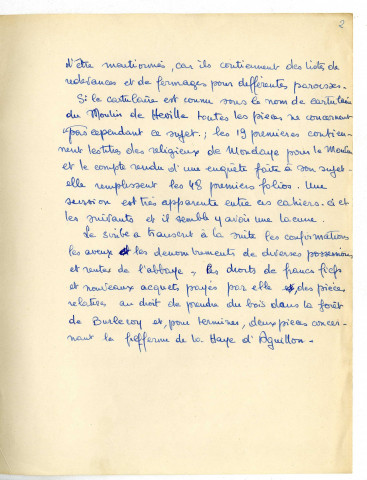 2
d'être mentionnés, car ils contiennent des listes de
redevances et de fermages pour différentes paroisses.
Si le cartulaire est connu sous le nom de cartulaire
du Moulin de toutes les pièces ne concernent
pas cependant ce sujet ; les 19 premières contien-
nent les titres des religieux de Mondaye pour le Moulin
et le compte rendu d'une enquête faite à son sujet.
elle remplissent les 48 premiers folios. Une
scission est très apparente entre ces cahiers-ci et
les suivants et il semble y avoir une lacune.
Le scribe a transcrit à la suite les confirmations
les aveux et les dénombrements de diverses possessions
et rentes de l'abbaye, les droits de francs fiefs
et nouveaux acquets payés par elle et des pièces
relatives au droit de prendre du bois dans la forêt
de Burleroy et, pour terminer, deux pièces concer-
nant la fiefferme de la Haye d'Aguillon.